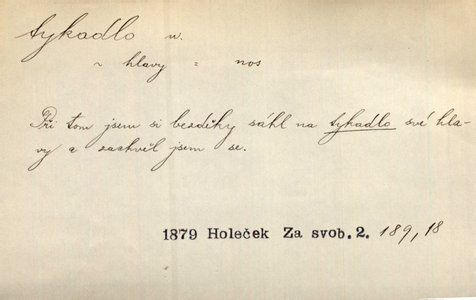 tykadlo n.
~ hlavy = nos
Při tom jsem si bezděky sáhl na tykadlo své hla-
vy a zachvěl jsem se.
1879 Holeček Za svob. 2. 189,18